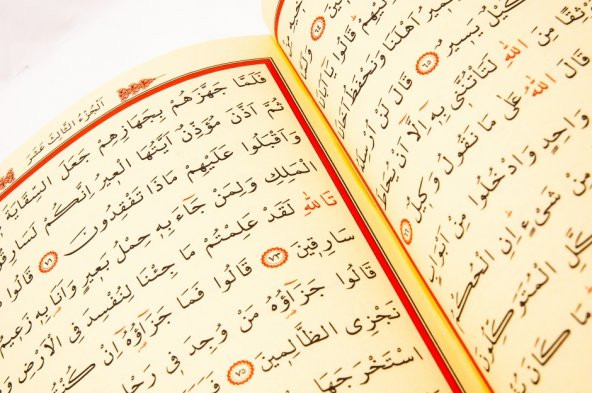 ٦٤ وَلَمَّا
اِلَيْهِمْ قَالُوا يَٓا
وَنَمِيرُ اَهْلَنَا وَنَحْفَظُ اَخَانَا
كَيْلٌ يَسِيرٌ ٦٥ قَالَ لَنْ اُرْسِلَهُ
مِنَ اللّٰهِ لَتَأْتُنَّنِي بِهِٓ اِلَّٓا اَنْ يُحَاطَ
قَالَ اللّٰهُ عَلٰى مَا نَقُولُ وَكِيلٌ ٦٦
وَاحِدٍ وَادْخُلُوا مِنْ اَبْوَابٍ
مِنْ شَيْءٍ اِنِ الْحُكْمُ
الْمُتَوَكِّلُونَ
مَا كَانَ
اَلْجُزْءُ الثَّالِثَ عَشَرَ
فَلَمَّا جَهَّزَهُمْ بِجَهَازِهِمْ جَعَلَ السِّقَايَةَ
ثُمَّ اَذَّنَ مُؤَذِّنٌ اَيَّتُهَا الْعِيرُ اِنَّكُمْ لَسَارِقُونَ
وَاَقْبَلُوا عَلَيْهِمْ مَاذَا تَفْقِدُونَ ٧١ قَالُوا
الْمَلِكِ وَلِمَنْ جَٓاءَ بِهِ حِمْلُ بَعِيرٍ وَاَنَا۬ بِهِ زَعِيمٌ
تَاللّٰهِ لَقَدْ عَلِمْتُمْ مَا جِئْنَا لِنُفْسِدَ فِي الْاَرْضِ
سَارِقِينَ ٧٣ قَالُوا فَمَا جَزَٓاؤُ۬هُٓ اِنْ كُنْتُمْ
قَالُوا جَزَٓاؤُ۬هُ مَنْ وُجِدَ فِي رَحْلِهِ
نَجْزِي الظَّالِمِينَ ٧٥
اسْتَخْرَجَهَا